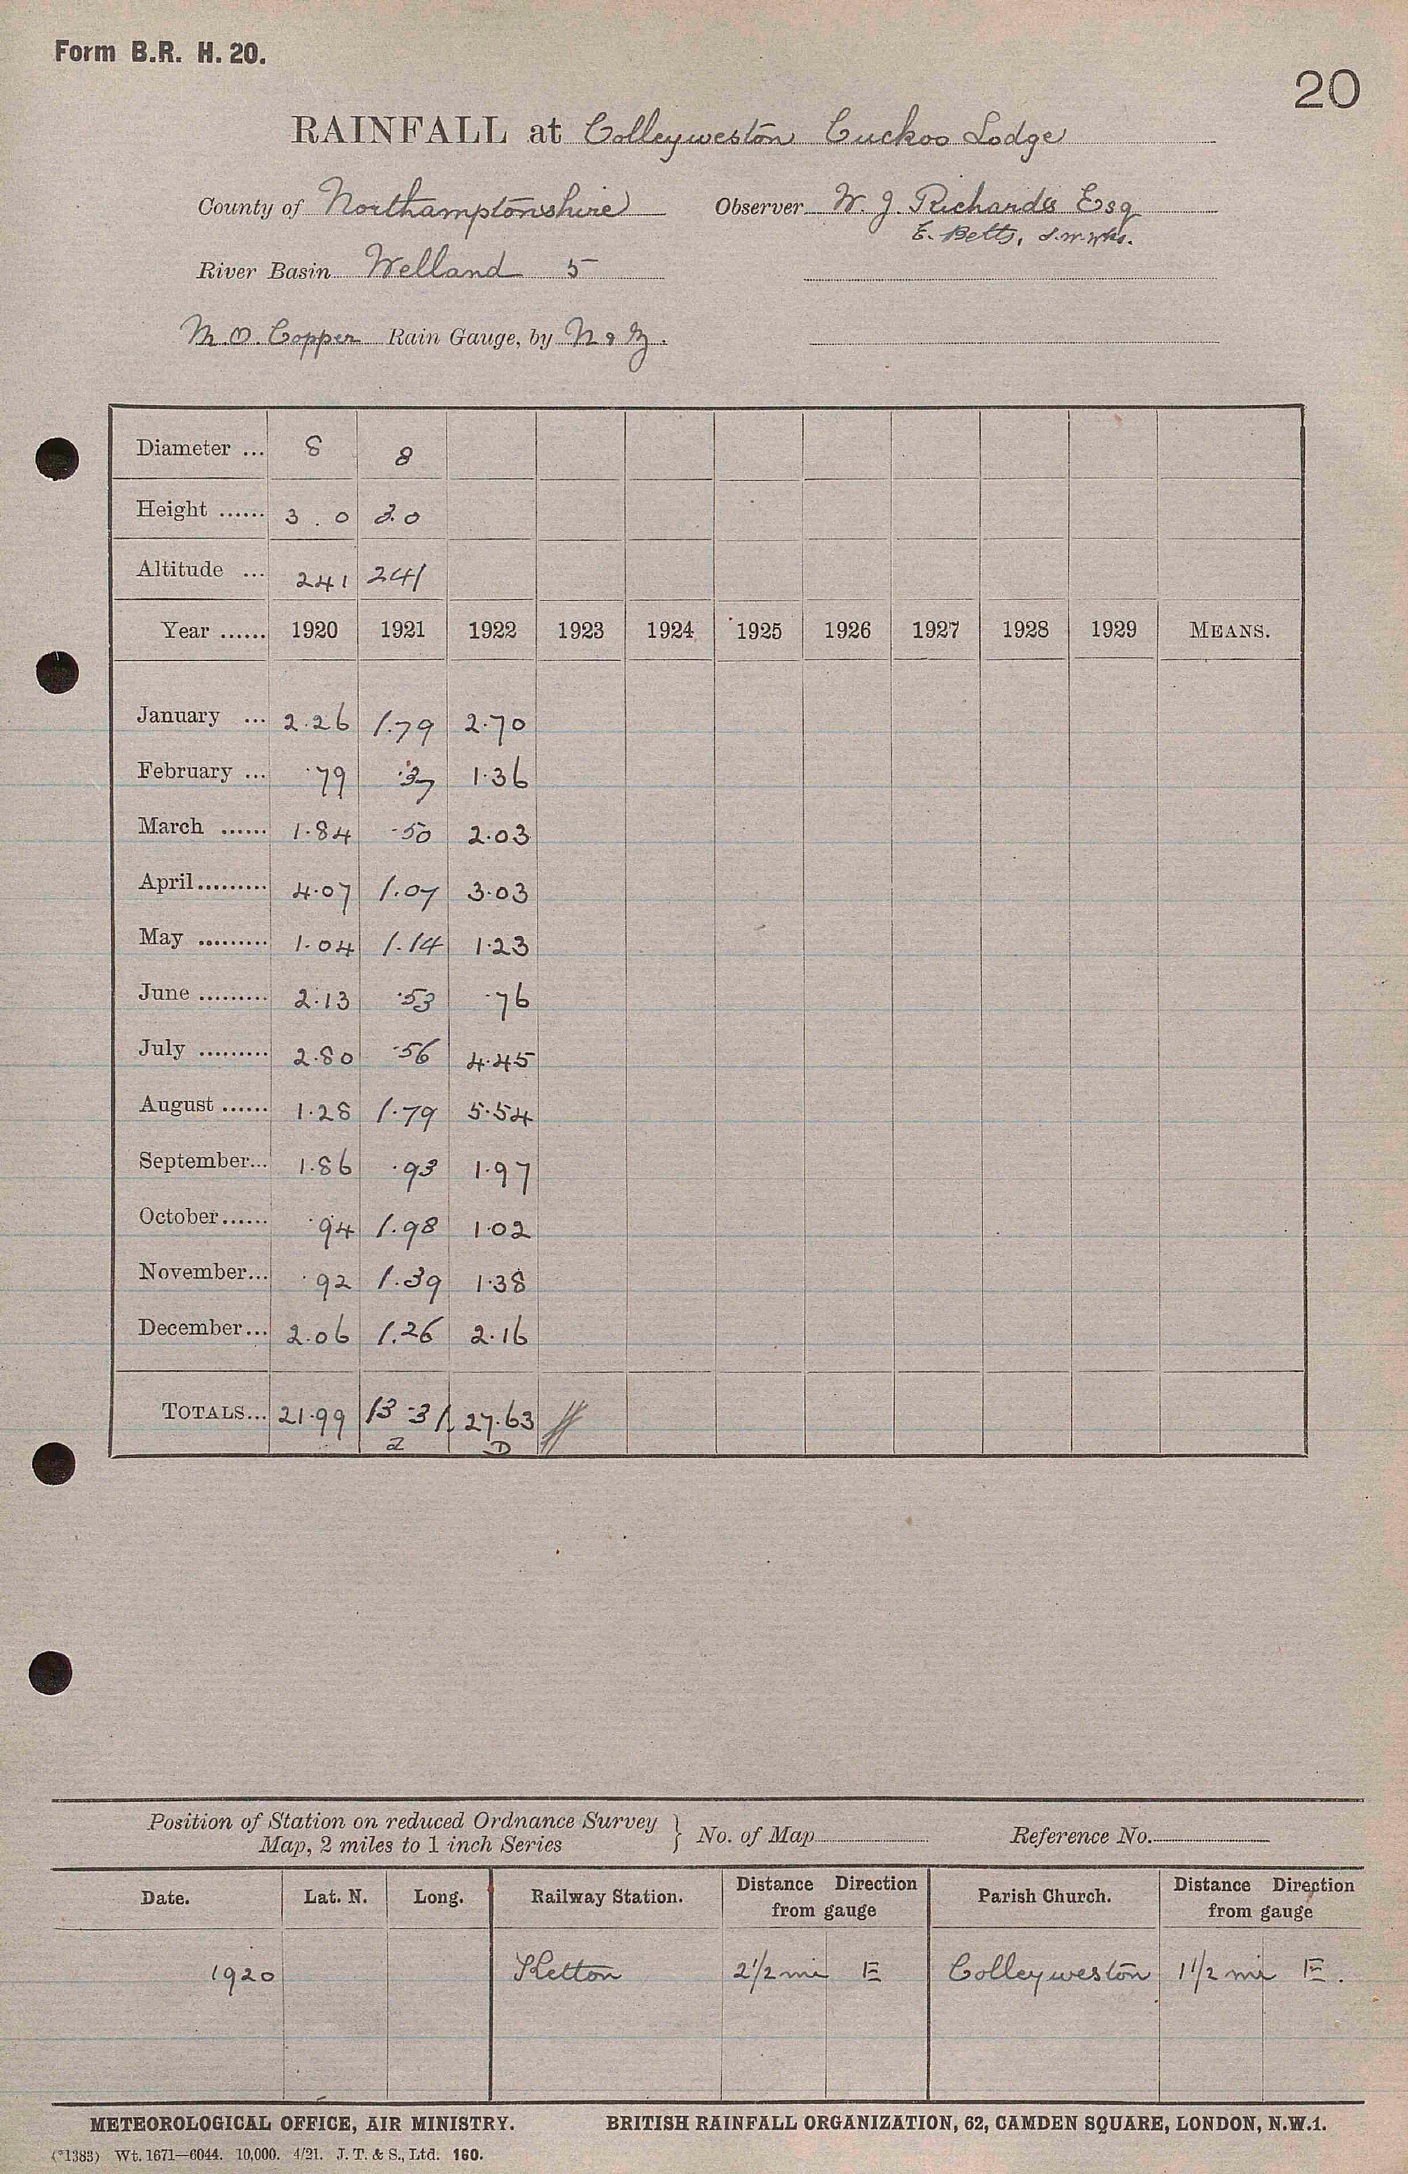 Form B.R. H. 20.
20
RAINFALL at Colleyweston Cuckoo Lodge
County of Northamptonshire Observer W. J. Richards Esq
E. Betts, S.W.Wks.
River Basin Welland 5
M.O. Copper Rain Gauge, by N & Z.
Diameter ... 8 8
Height ...... 3.0 3.0
Altitude ... 241 241
Year ...... 1920 1921 1922 1923 1924 1925 1926 1927 1928 1929 MEANS.
January ... 2.26 1.79 2.70
February ... .79 .37 1.36
March ...... 1.84 .50 2.03
April......... 4.07 1.07 3.03
May ......... 1.04 1.14 1.23
June ......... 2.13 .53 .76
July ......... 2.80 .56 4.45
August ...... 1.28 1.79 5.54
September... 1.86 .93 1.97
October...... .94 1.98 1.02
November... .92 1.39 1.38
December... 2.06 1.26 2.16
TOTALS... 21.99 13.31 27.63
D
Position of Station on reduced Ordnance Survey
Map, 2 miles to 1 inch Series } No. of Map Reference No.
Date. Lat. N. Long. Railway Station. Distance Direction from gauge Parish Church. Distance Direction from gauge
1920 Ketton 2 1/2 mi E Colleyweston 1 1/2 mi E.
METEOROLOGICAL OFFICE, AIR MINISTRY. BRITISH RAINFALL ORGANIZATION, 62, CAMDEN SQUARE, LONDON, N.W.1.
(*1383) Wt. 1671—6044. 10,000. 4/21. J. T. & S., Ltd. 160.